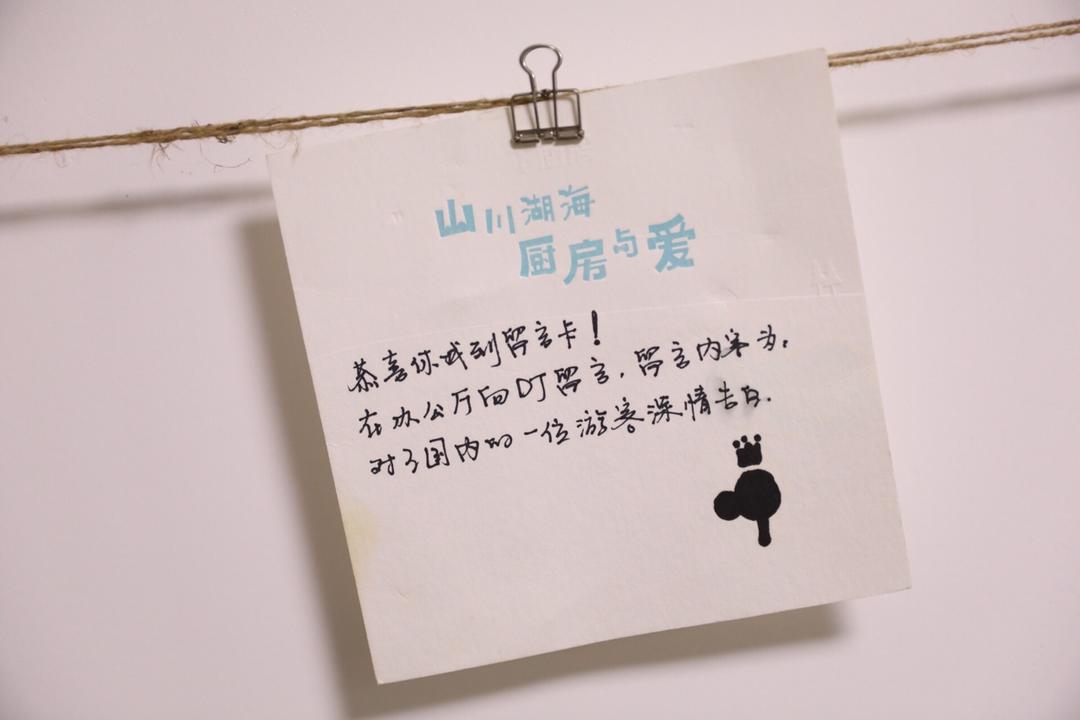 山川湖海
厨房与爱
恭喜你找到留言卡！
在办公厅向DJ留言，留言内容为：
对国内的一位游客深情告白.